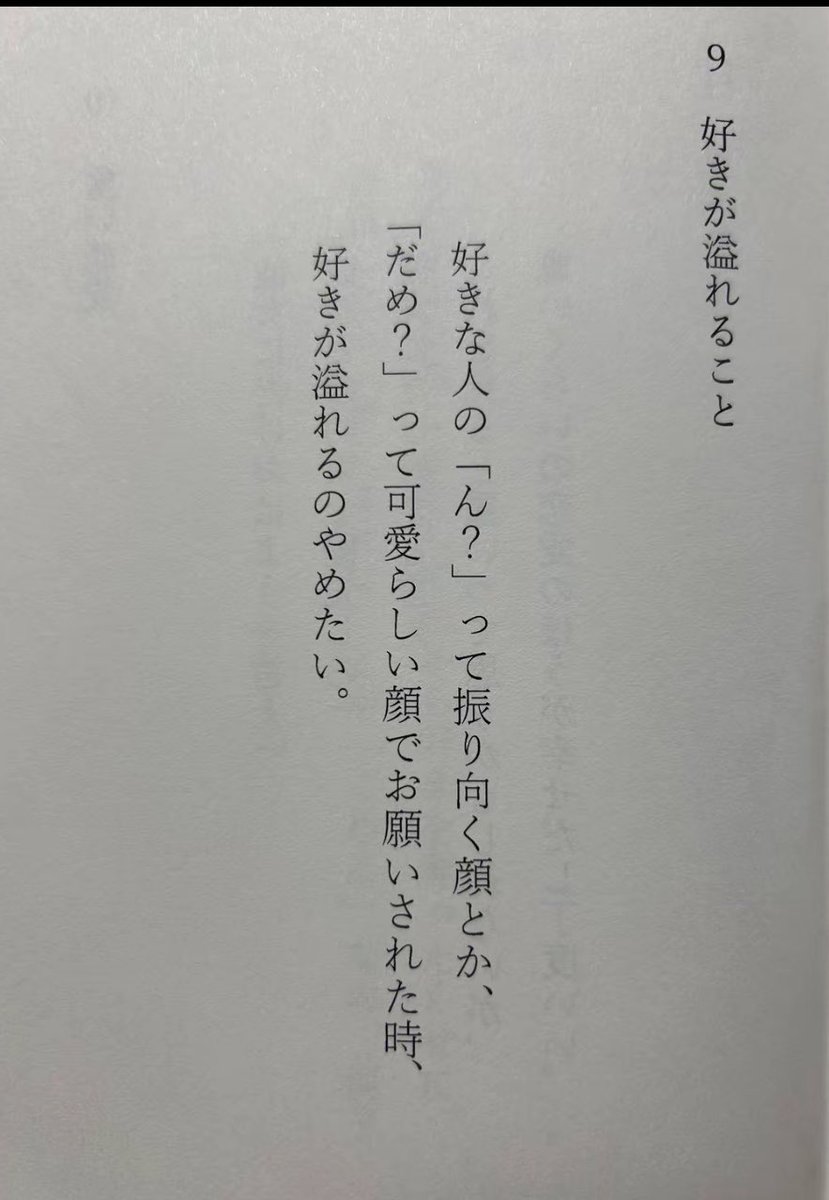 9 好きが溢れること
好きな人の「ん？」って振り向く顔とか、
「だめ？」って可愛らしい顔でお願いされた時、
好きが溢れるのやめたい。